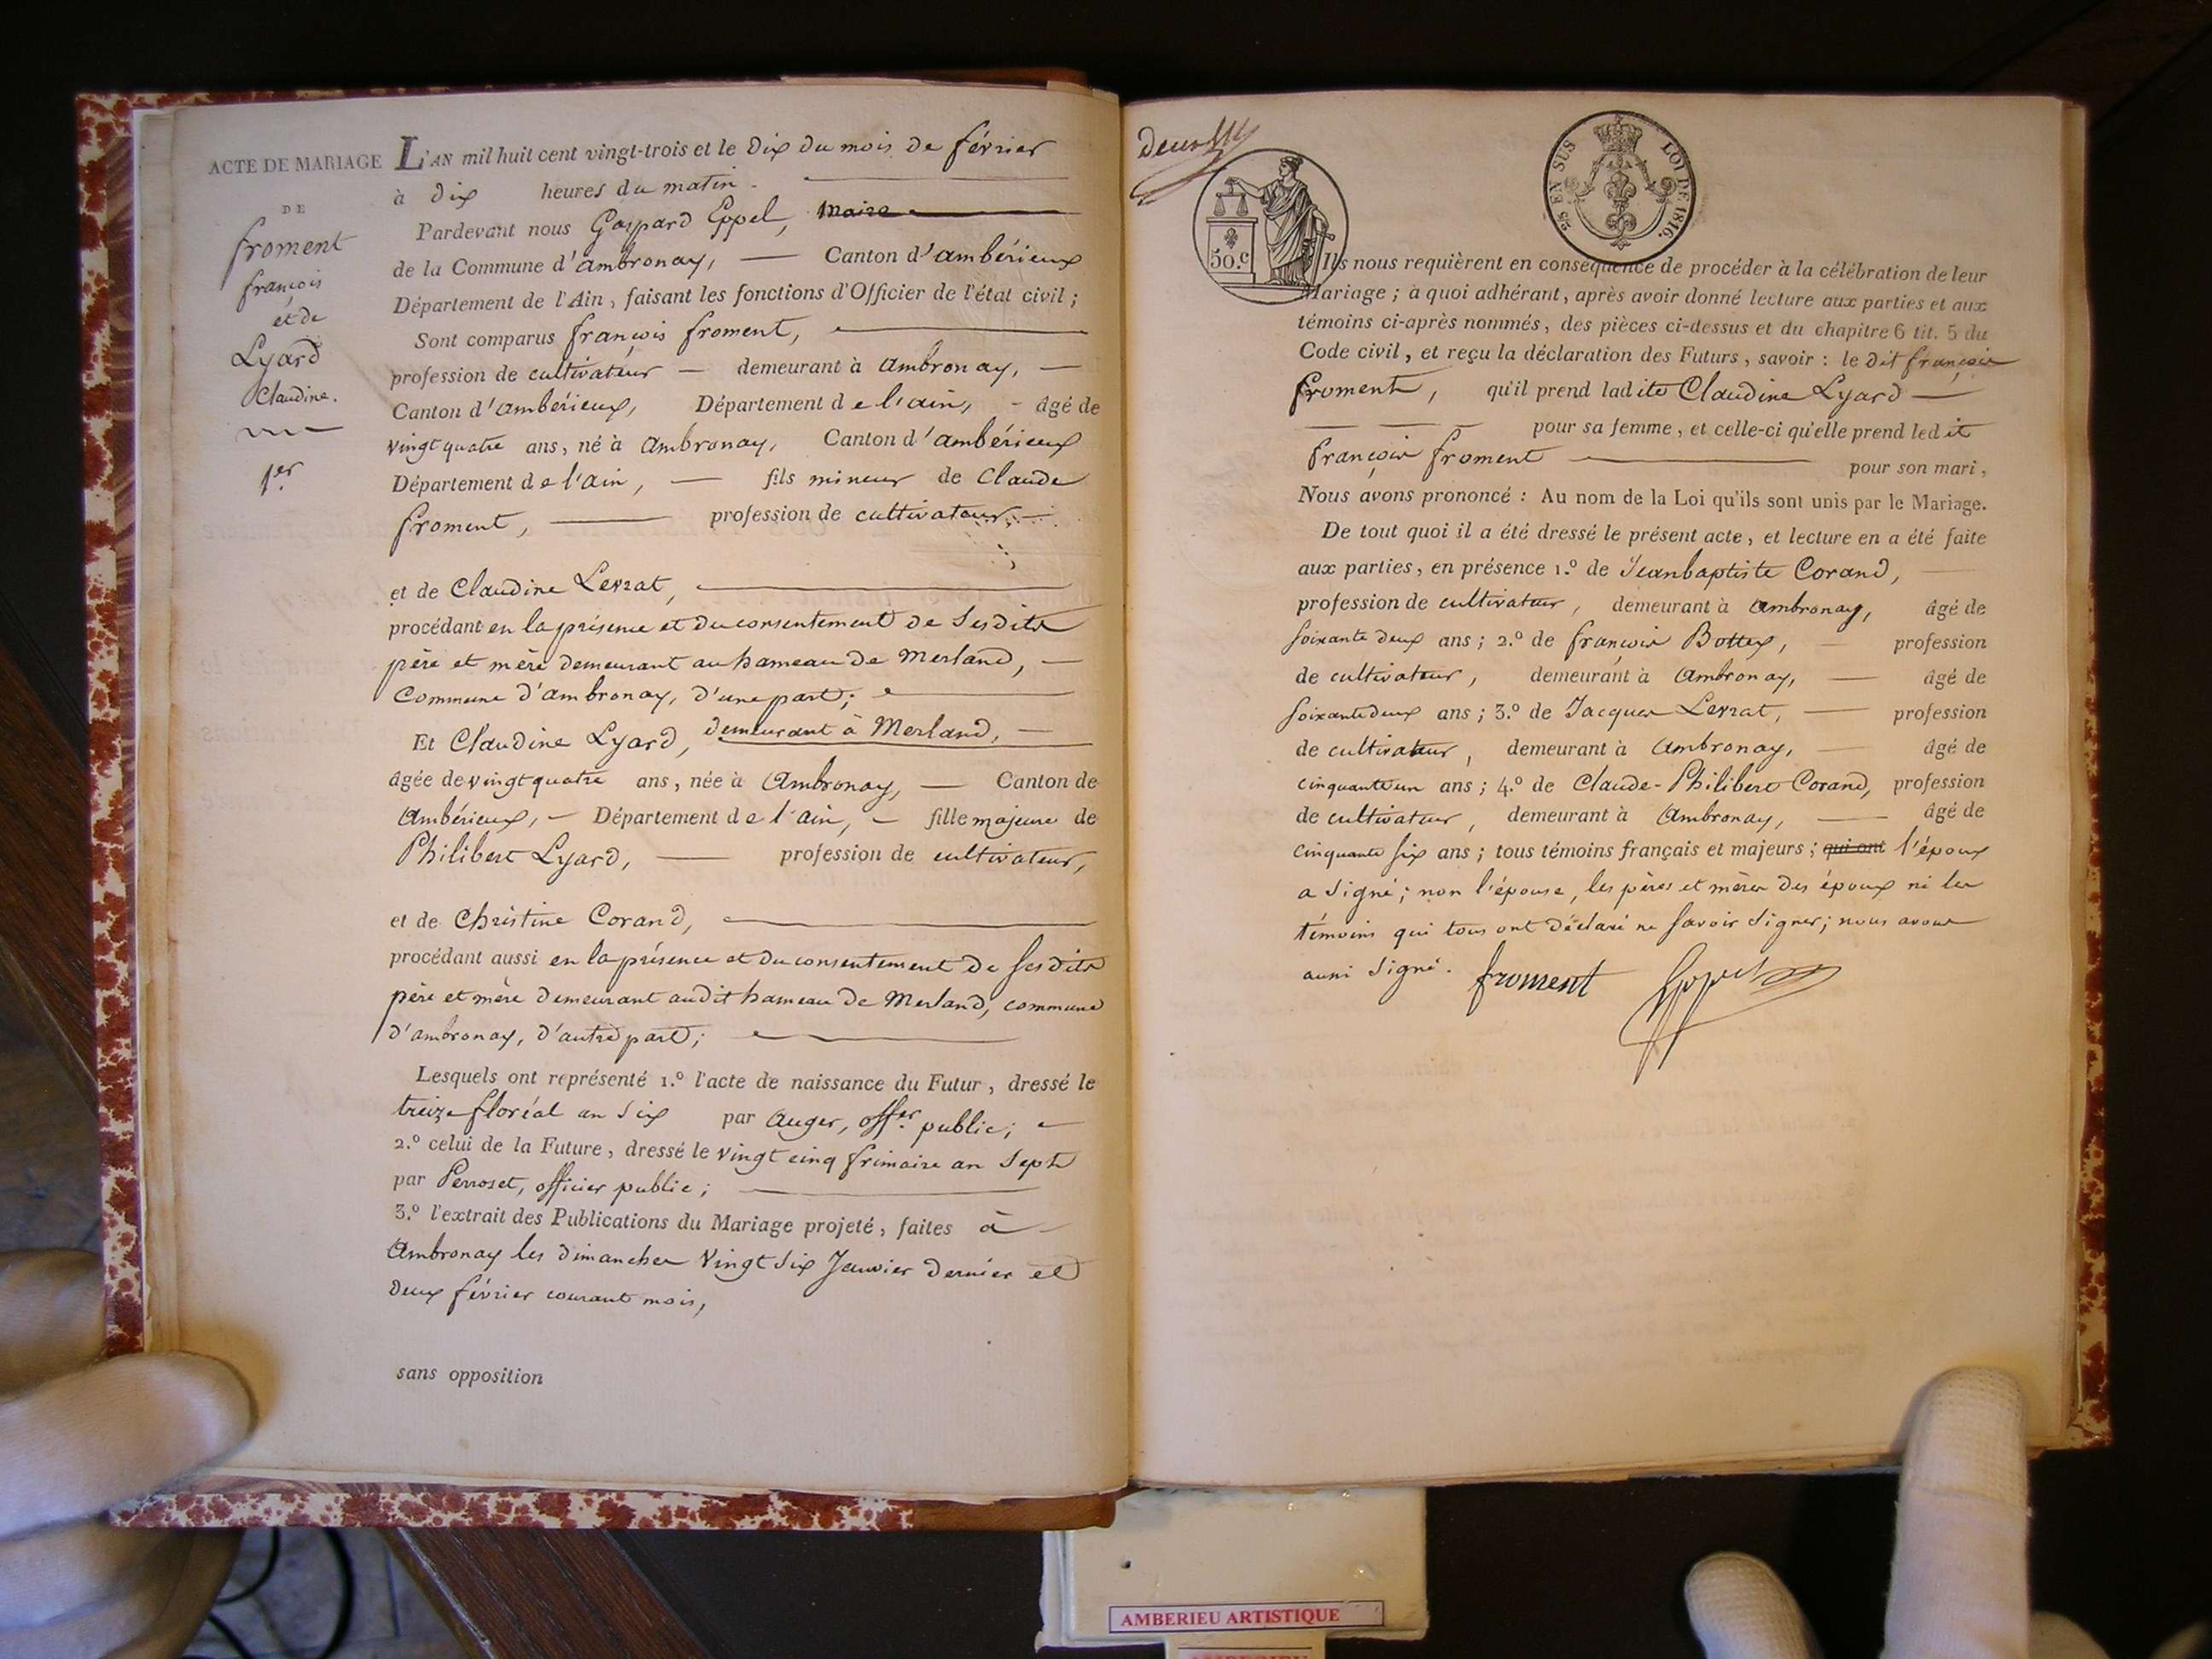 ACTE DE MARIAGE
DE
froment
françois
et de
Lyard
Claudine.
1er
L'AN mil huit cent vingt-trois et le dix du mois de février
à dix heures du matin.
Pardevant nous Gaspard Eppel, Maire
de la Commune d'ambronay, Canton d'ambérieux
Département de l'Ain, faisant les fonctions d'Officier de l'état civil ;
Sont comparus françois froment,
profession de cultivateur demeurant à Ambronay,
Canton d'ambérieux, Département de l'ain, âgé de
vingt quatre ans, né à Ambronay, Canton d'ambérieux
Département de l'ain, fils mineur de Claude
froment, profession de cultivateur,
et de Claudine Levrat,
procédant en la présence et du consentement de Sesdits
père et mère demeurant au hameau de Merland,
Commune d'ambronay, d'une part ;
Et Claudine Lyard, demeurant à Merland,
âgée de vingt quatre ans, née à Ambronay, Canton de
Ambérieux, Département de l'ain, fille majeure de
Philibert Lyard, profession de cultivateur,
et de Christine Corand,
procédant aussi en la présence et du consentement de Sesdits
père et mère demeurant audit hameau de Merland, commune
d'ambronay, d'autre part ;
Lesquels ont représenté 1.º l'acte de naissance du Futur, dressé le
treize floréal an Six par Auger, offer. public ;
2.º celui de la Future, dressé le vingt cinq frimaire an Sept
par Perroset, officier public ;
3.º l'extrait des Publications du Mariage projeté, faites à
Ambronay les dimanches vingt Six Janvier dernier et
deux février courant mois,
sans opposition
50.c
25 EN SUS LOI DE 1816.
Ils nous requièrent en conséquence de procéder à la célébration de leur
Mariage ; à quoi adhérant, après avoir donné lecture aux parties et aux
témoins ci-après nommés, des pièces ci-dessus et du chapitre 6 tit. 5 du
Code civil, et reçu la déclaration des Futurs, savoir : le dit françois
froment, qu'il prend ladite Claudine Lyard
pour sa femme, et celle-ci qu'elle prend ledit
françois froment pour son mari,
Nous avons prononcé : Au nom de la Loi qu'ils sont unis par le Mariage.
De tout quoi il a été dressé le présent acte, et lecture en a été faite
aux parties, en présence 1.º de Jeanbaptiste Corand,
profession de cultivateur, demeurant à Ambronay, âgé de
soixante deux ans ; 2.º de françois Bottex, profession
de cultivateur, demeurant à Ambronay, âgé de
soixante deux ans ; 3.º de Jacques Levrat, profession
de cultivateur, demeurant à Ambronay, âgé de
cinquante un ans ; 4.º de Claude-Philibert Corand, profession
de cultivateur, demeurant à Ambronay, âgé de
cinquante six ans ; tous témoins français et majeurs ; qui ont l'époux
a Signé ; non l'épouse, les pères et mères des époux ni les
témoins qui tous ont déclaré ne Savoir Signer ; nous avons
aussi Signé. froment Eppel
AMBERIEU ARTISTIQUE